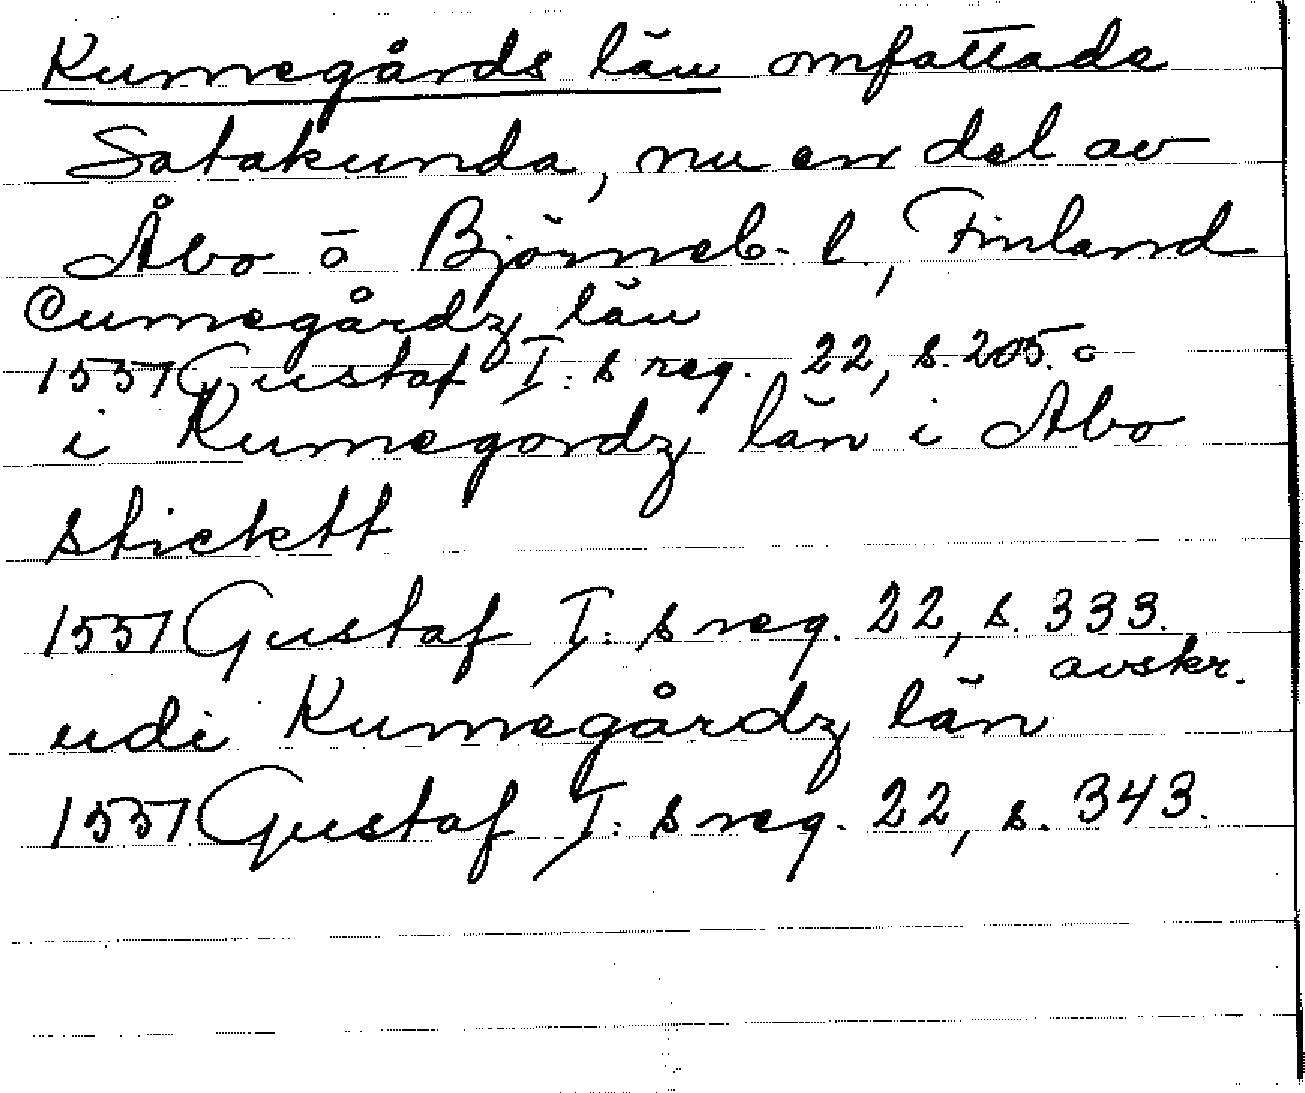 Kumegårds län omfattade
Satakunda, nu en del av
Åbo o Björneb. l., Finland
Cumegårdz län
1557 Gustaf I:s reg. 22, s. 205. o
i Kumegordz län i Abo
stickett
1557 Gustaf I:s reg. 22, s. 333.
avskr.
udi Kumegårdz län
1557 Gustaf I:s reg. 22, s. 343.